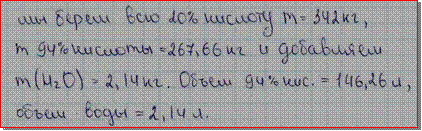 мы берем всю 20% кислоту m = 342 кг,
m 94% кислоты = 267,66 кг и добавляем
m(H₂O) = 2,14 кг. Объем 94% кис. = 146,26 л,
объем воды = 2,14 л.